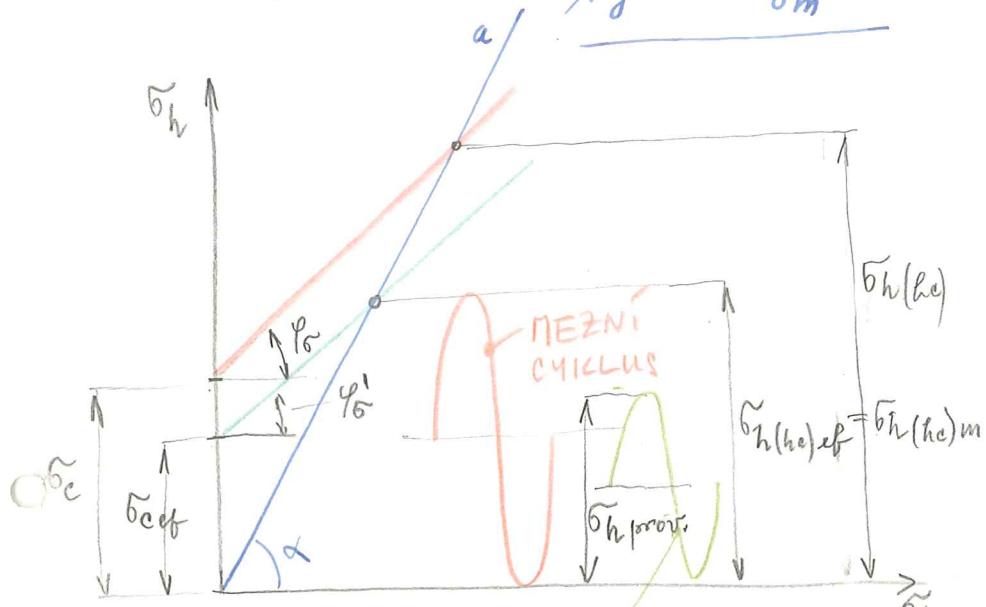 a
σm
σh
σh(hc)
φσ
MEZNÍ
CYKLUS
φσ'
σh(hc)ef = σh(hc)m
σc
σcef
σh prov.
α